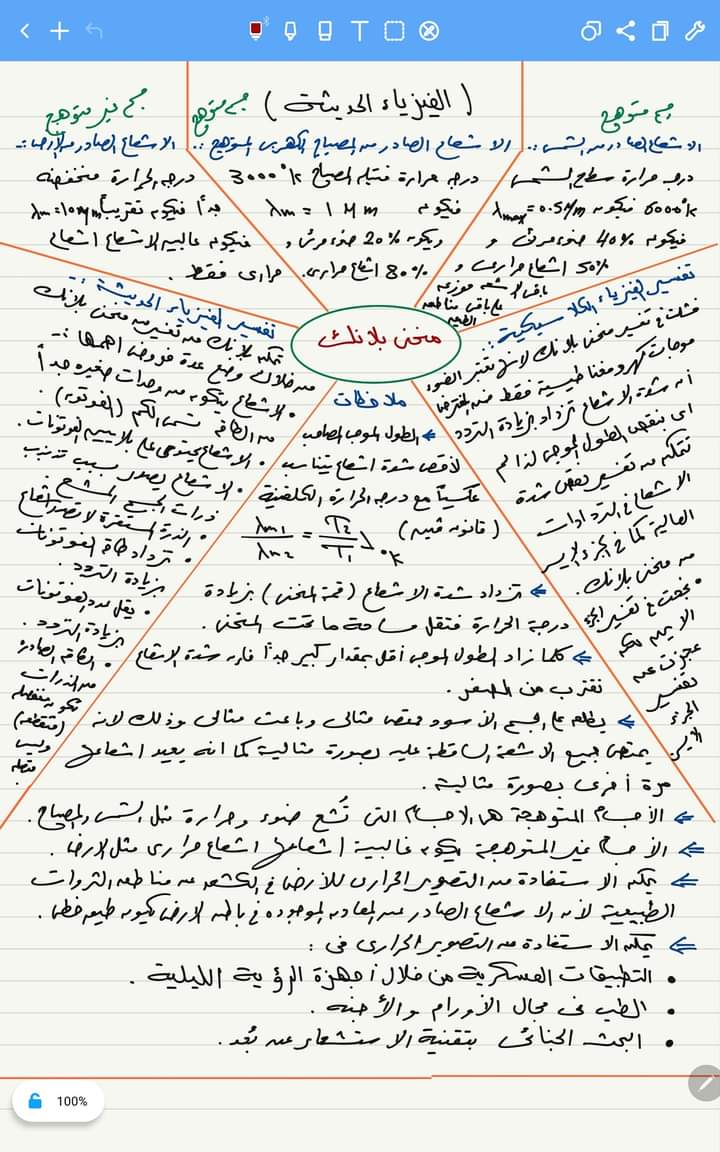 ( الفيزياء الحديثة )
جسم متوهج
الاشعاع الصادر من الشمس :.
درجه حرارة سطح الشمس
6000°k فيكون λmax = 0.5 Mm
فيكون 40% ضوء مرئى و
50% اشعاع حرارى و
باقى الاشعه موزعه
على باقى مناطق
الطيف
جسم متوهج
الاشعاع الصادر من المصباح الكهربى المتوهج :.
درجه حرارة فتيلة المصباح 3000°k
فيكون λm = 1 Mm
ويكون 20% ضوء مرئى و
80% اشعاع حرارى.
جسم غير متوهج
الاشعاع الصادر من الارض :.
درجه الحرارة منخفضه
جداً فيكون تقريباً λm = 10 Mm
فيكون غالبية الاشعاع اشعاع
حرارى فقط .
منحنى بلانك
تفسير الفيزياء الكلاسيكية :.
فشلت فى تفسير منحنى بلانك لانها تعتبر الضوء
موجات كهرومغناطيسية فقط فمن المفترض
أن شدة الاشعاع تزداد بزيادة التردد
اى بنقص الطول الموجى لذا لم
تتمكن من تفسير نقص شدة
الاشعاع فى الترددات
العالية كما فى الجزء الايسر
من منحنى بلانك.
• نجحت فى تفسير الجزء
الايمن ولكن
عجزت عن
تفسير
الجزء
الايسر
تفسير الفيزياء الحديثة :.
تمكن بلانك من تفسير منحنى بلانك
من خلال وضع عدة فروض اهمها :.
• الاشعاع يتكون من وحدات صغيره جداً
من الطاقه تسمى الكم (الفوتون) .
• الاشعاع يحتوى على بلايين الفوتونات .
• الاشعاع يصدر بسبب تذبذب
ذرات الجسم المشع .
• الذرة المستقرة لا تصدر اشعاع
• تزداد طاقة الفوتونات
بزيادة التردد .
• يقل عدد الفوتونات
بزيادة التردد .
• الطاقه الصادرة
من الذرات
تكون منفصله
(متقطعه)
وليس
متصله
ملاحظات
⇐ الطول الموجى المصاحب
لاقصى شدة اشعاع يتناسب
عكسياً مع درجه الحرارة الكلفنية
(قانون فين) λm1 / λm2 = T2 / T1 °k
⇐ تزداد شدة الاشعاع (قمة المنحنى) بزيادة
درجة الحرارة فتقل مساحة ما تحت المنحنى .
⇐ كلما زاد الطول الموجى أقل بمقدار كبير جداً فان شدة الاشعاع
تقترب من الصفر .
⇐ يطلق على الجسم الأسود ممتص مثالى وباعث مثالى وذلك لانه
يمتص جميع الاشعة الساقطة عليه بصورة مثالية كما انه يعيد اشعاعها
مرة أخرى بصورة مثالية .
⇐ الأجسام المتوهجة هى الاجسام التى تُشع ضوء وحرارة مثل الشمس والمصباح .
⇐ الأجسام غير المتوهجة يكون غالبية اشعاعها اشعاع حرارى مثل الارض .
⇐ يمكن الاستفادة من التصوير الحرارى للأرض فى الكشف عن مناطق الثروات
الطبيعية لأن الاشعاع الصادر عن المعادن الموجوده فى باطن الارض يكون طيف خطى .
⇐ يمكن الاستفادة من التصوير الحرارى فى :
• التطبيقات العسكرية من خلال أجهزة الرؤية الليلية .
• الطب فى مجال الأورام والأجنه .
• البحث الجنائى بتقنية الاستشعار عن بُعد .
100%